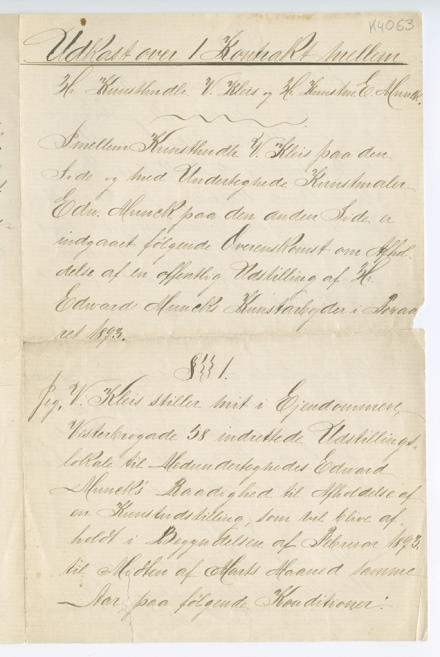 K4063
Udkast over 1 Kontrakt mellem
Hr. Kunsthndlr V. Kleis og Hr. Kunstm E. Munch.
Imellem Kunsthndlr V. Kleis paa den
Side og med Undertegnede Kunstmaler
Edv. Munck paa den anden Side er
indgaaet følgende Overenskomst om Afhol-
delse af en offentlig Udstilling af Hr.
Edvard Muncks Kunstarbejder i Foraa
ret 1893.
§§§ 1.
Jeg, V. Kleis stiller mit i Ejendommen,
Vesterbrogade 58 indrettede Udstillings-
lokale til Medundertegnedes Edvard
Munck's Raadighed til Afholdelse af
en Kunstudstilling, som vil blive af-
holdt i Begyndelsen af Februar 1893
til Midten af Marts Maaned samme
Aar paa følgende Konditioner: